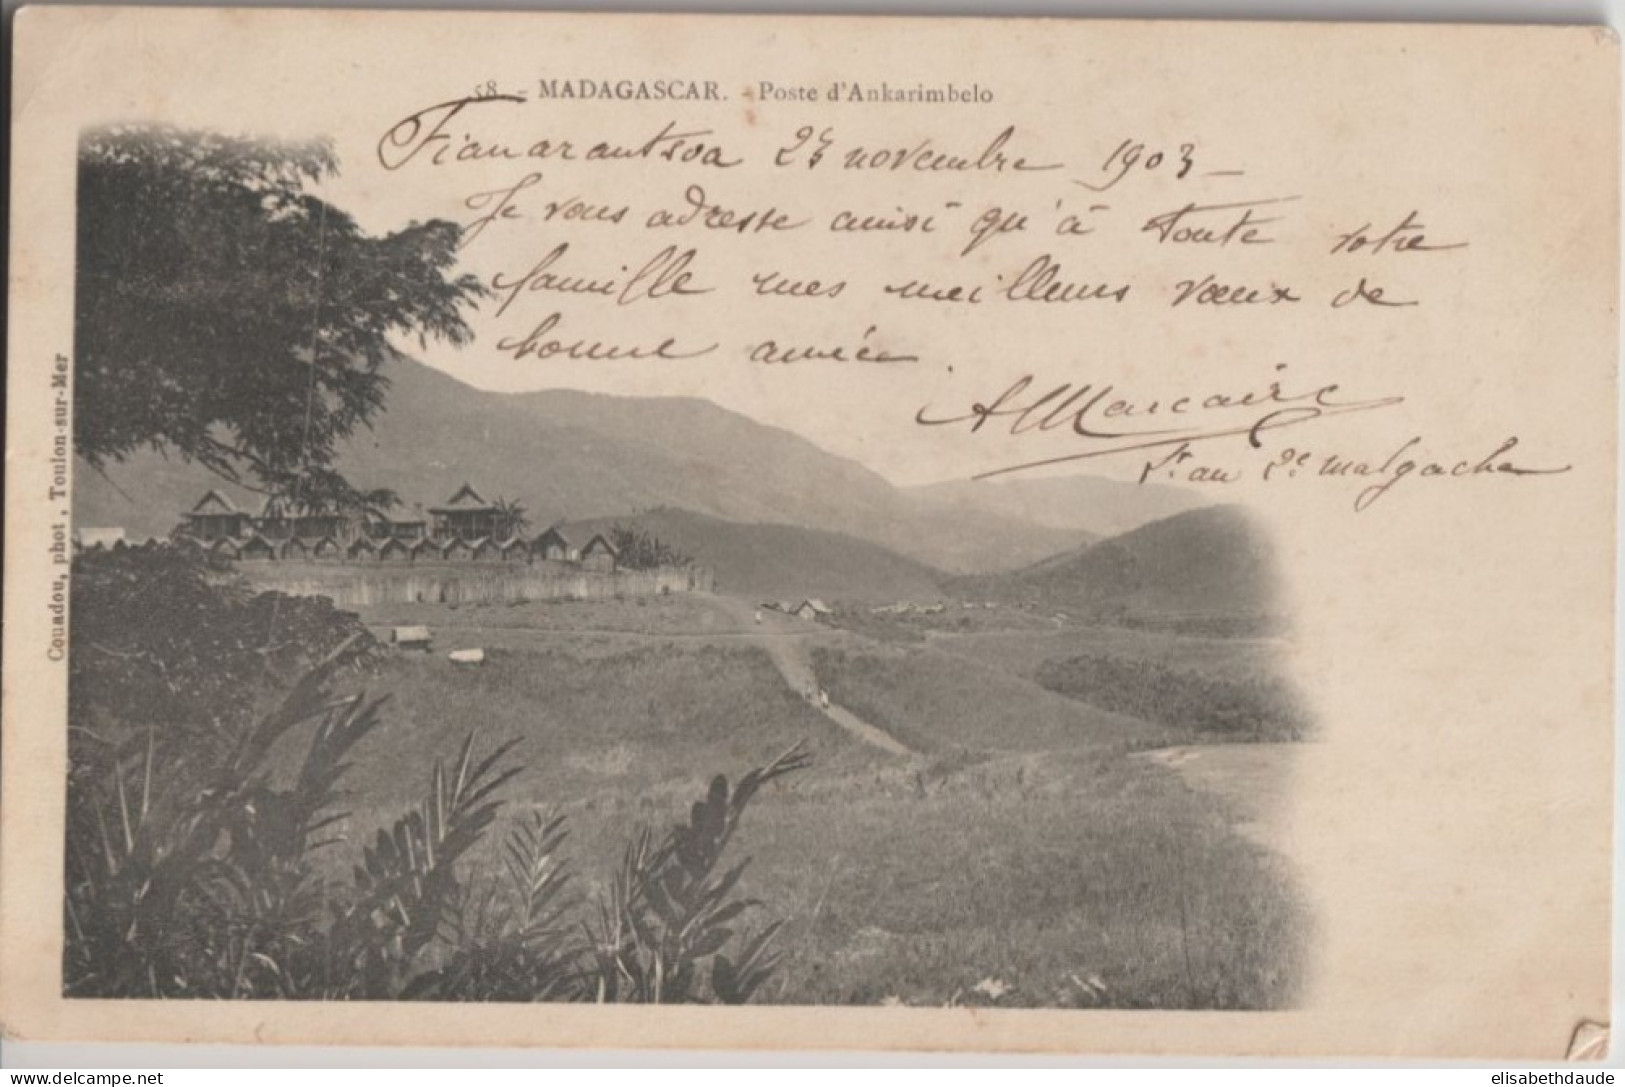 58. - MADAGASCAR. - Poste d'Ankarimbelo
Fianarantsoa 25 novembre 1903 -
Je vous adresse ainsi qu'à toute votre
famille mes meilleurs vœux de
bonne année.
A Marcaire
au 2e malgache
Couadou, phot., Toulon-sur-Mer
delcampe.net
elisabethdaude